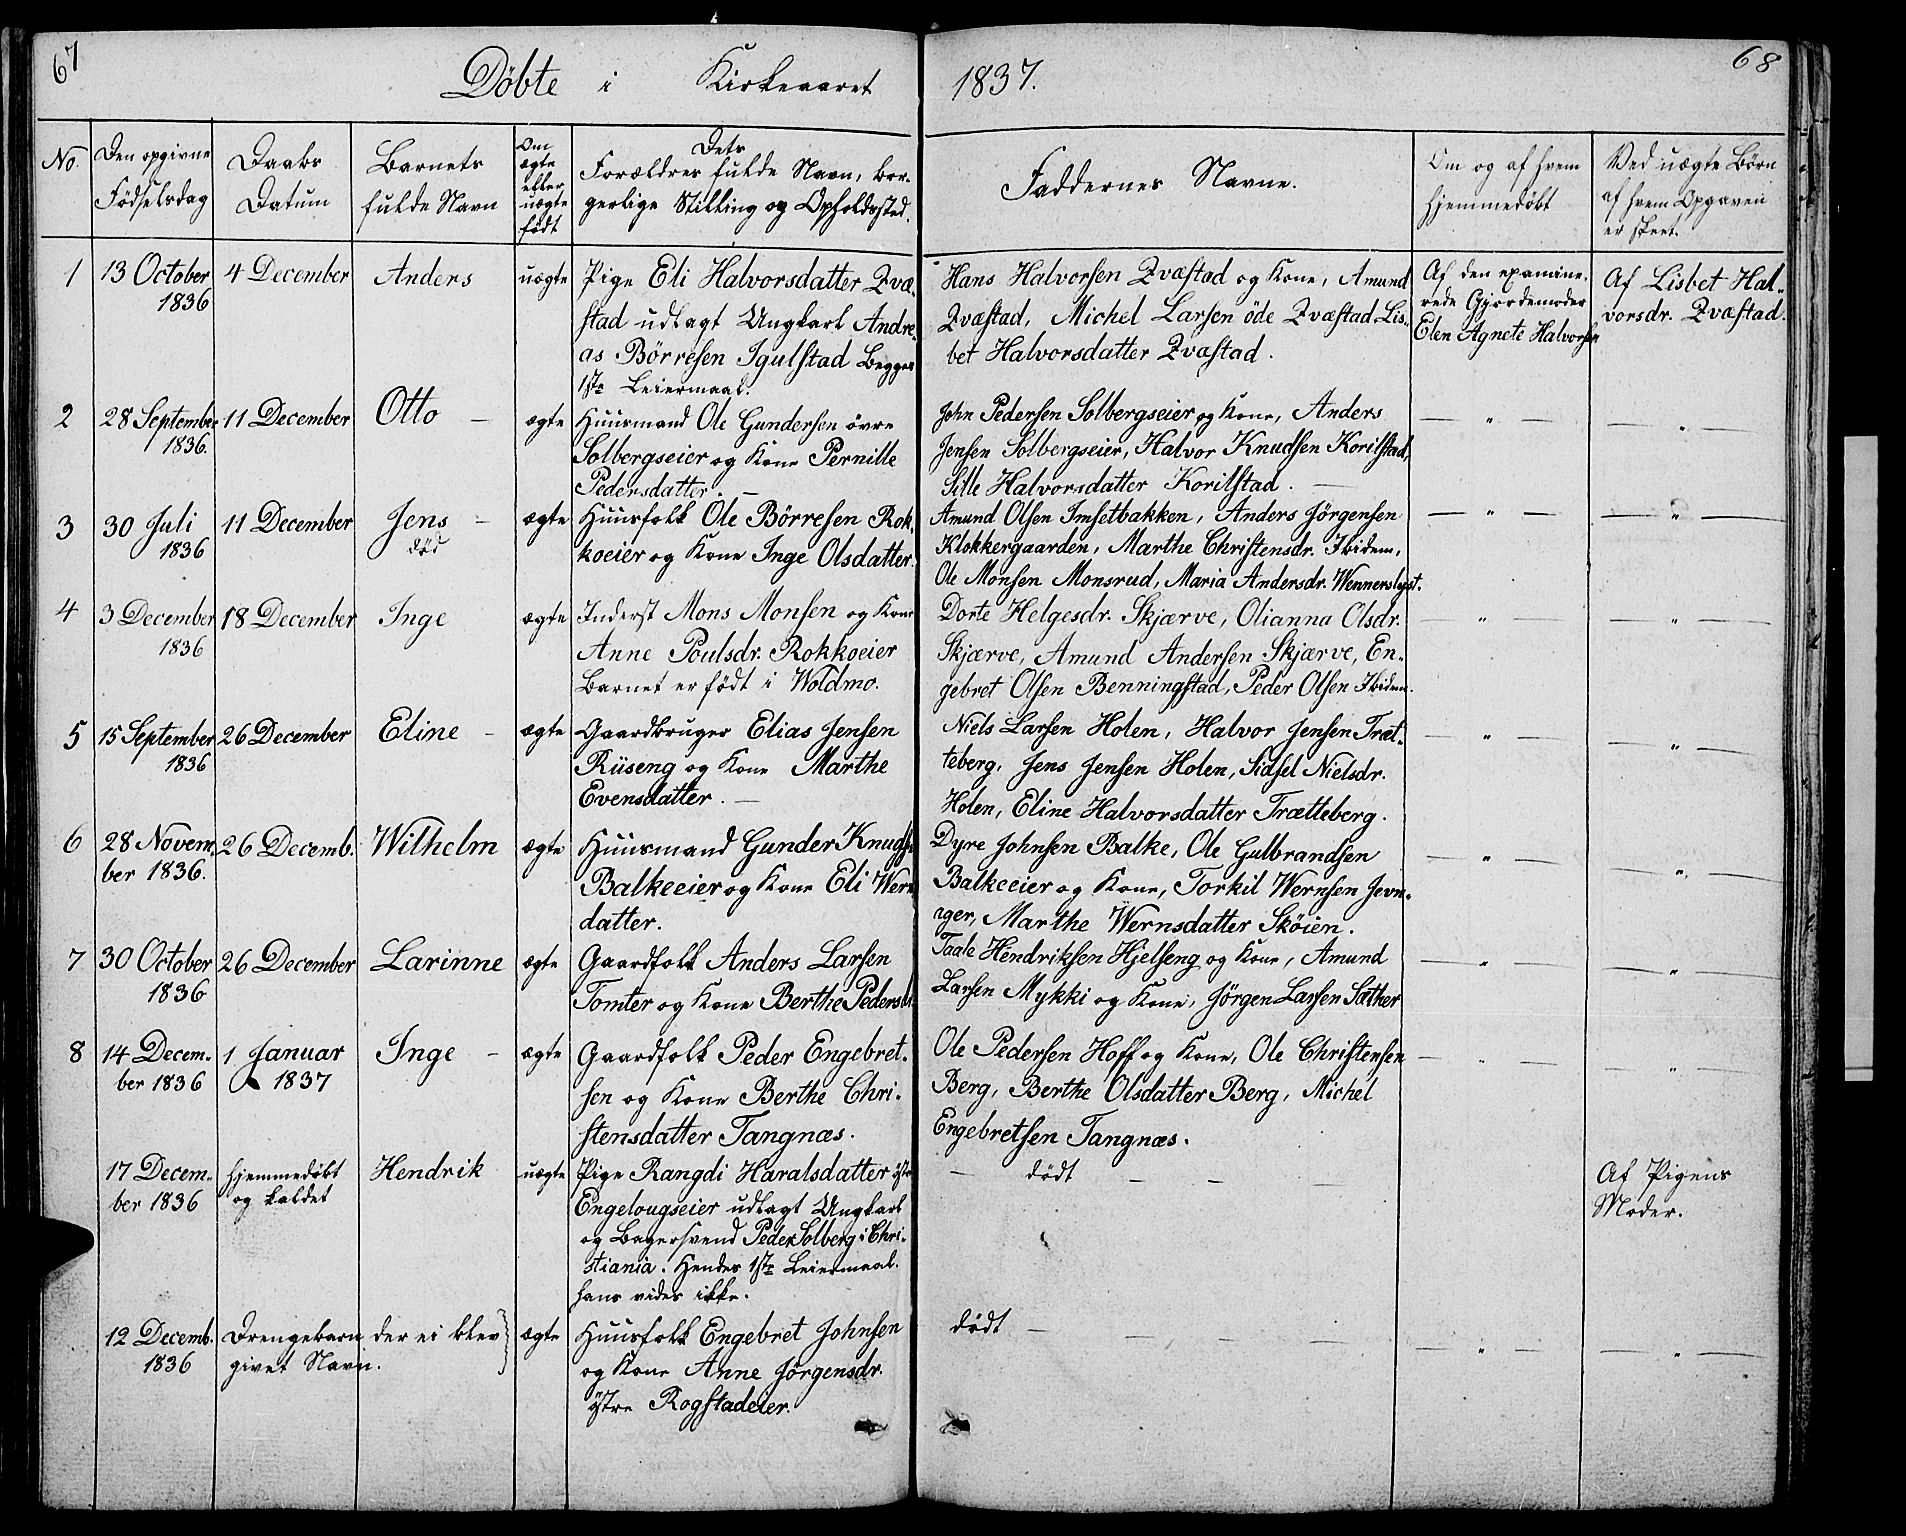 67
68
Döbte i Kirkeaaret 1837.
No.
Den opgivne
Födselsdag
Daabs
Datum
Barnets
fulde Navn
Om
ægte
eller
uægte
födt
Dets
Forældres fulde Navn, bor-
gerlige Stilling og Opholdssted.
Faddernes Navne.
Om og af hvem
hjemmedöbt
Ved uægte Börn
af hvem Opgaven
er skeet.
1
13 October
1836
4 December
Anders
uægte
Pige Eli Halvorsdatter Qvæ-
stad udlagt Ungkarl Andre-
as Börresen Igulstad Begges
1ste Leiermaal.
Hans Halvorsen Qvæstad og Kone, Amund
Qvæstad, Michel Larsen öde Qvæstad Lis-
bet Halvorsdatter Qvæstad.
Af den examine-
rede Gjordemoder
Elen Agnete Halvorsen
Af Lisbet Hal-
vorsdr. Qvæstad.
2
28 September
1836.
11 December
Otto —
ægte
Huusmand Ole Gundersen övre
Solbergseier og Kone Pernille
Pedersdatter. —
John Pedersen Solbergseier og Kone, Anders
Jensen Solbergseier, Halvor Knudsen Korilstad,
Sille Halvorsdatter Korilstad. —
— " —
— " —
3
30 Juli
1836
11 December
Jens —
död
ægte
Huusfolk Ole Börresen Rok-
koeier og Kone Inge Olsdatter.
Amund Olsen Imsetbakken, Anders Jörgensen
Klokkergaarden, Marthe Christensdr. Ibidem,
Ole Monsen Monsrud, Maria Andersdr. Wennerslyst.
— " —
— " —
4
3 December
1836
18 December
Inge
ægte
Inderst Mons Monsen og Kone
Anne Poulsdr. Rokkoeier
Barnet er födt i Woldmo.
Dorte Helgesdr. Skjærve, Olianna Olsdr.
Skjærve, Amund Andersen Skjærve, En-
gebret Olsen Benningstad, Peder Olsen Ibidem.
— " —
— " —
5
15 September
1836
26 December
Eline —
ægte
Gaardbruger Elias Jensen
Rüseng og Kone Marthe
Evensdatter. —
Niels Larsen Holen, Halvor Jensen Træt-
teberg, Jens Jensen Holen, Sidsel Nielsdr.
Holen, Eline Halvorsdatter Trætteberg.
— " —
— " —
6
28 Novem-
ber 1836.
26 Decemb.
Wilhelm
ægte
Huusmand Gunder Knudsen
Balkeeier og Kone Eli Werns
datter.
Dyre Johnsen Balke, Ole Gulbrandsen
Balkeeier og Kone, Torkil Wernsen Jevn-
ager, Marthe Wernsdatter Sköien.
— " —
— " —
7
30 October
1836
26 December
Larinne
ægte
Gaardfolk Anders Larsen
Tomter og Kone Berthe Pedersdr.
Taale Hendriksen Hjelseng og Kone, Amund
Larsen Mykki og Kone, Jörgen Larsen Sæther
— " —
— " —
8
14 Decem-
ber 1836
1 Januar
1837
Inge —
ægte
Gaardfolk Peder Engebret-
sen og Kone Berthe Chri-
stensdatter Tangnæs.
Ole Pedersen Hoff og Kone, Ole Christensen
Berg, Berthe Olsdatter Berg, Michel
Engebretsen Tangnæs.
— " —
— " —
17 Decem-
ber 1836
hjemmedöbt
og kaldet
Hendrik
uægte
Pige Rangdi Haralsdatter östre
Engelougseier udlagt Ungkarl
og Bagersvend Peder Solberg i Chri-
stiania. Hendes 1ste Leiermaal.
hans vides ikke.
— dödt — — —
Af Pigens
Moder.
12 Decemb.
1836
Drengebarn der ei blev
givet Navn.
ægte
Huusfolk Engebret Johnsen
og Kone Anne Jörgensdr.
östre Rogstadeier.
dödt — — — —
— " —
— " —